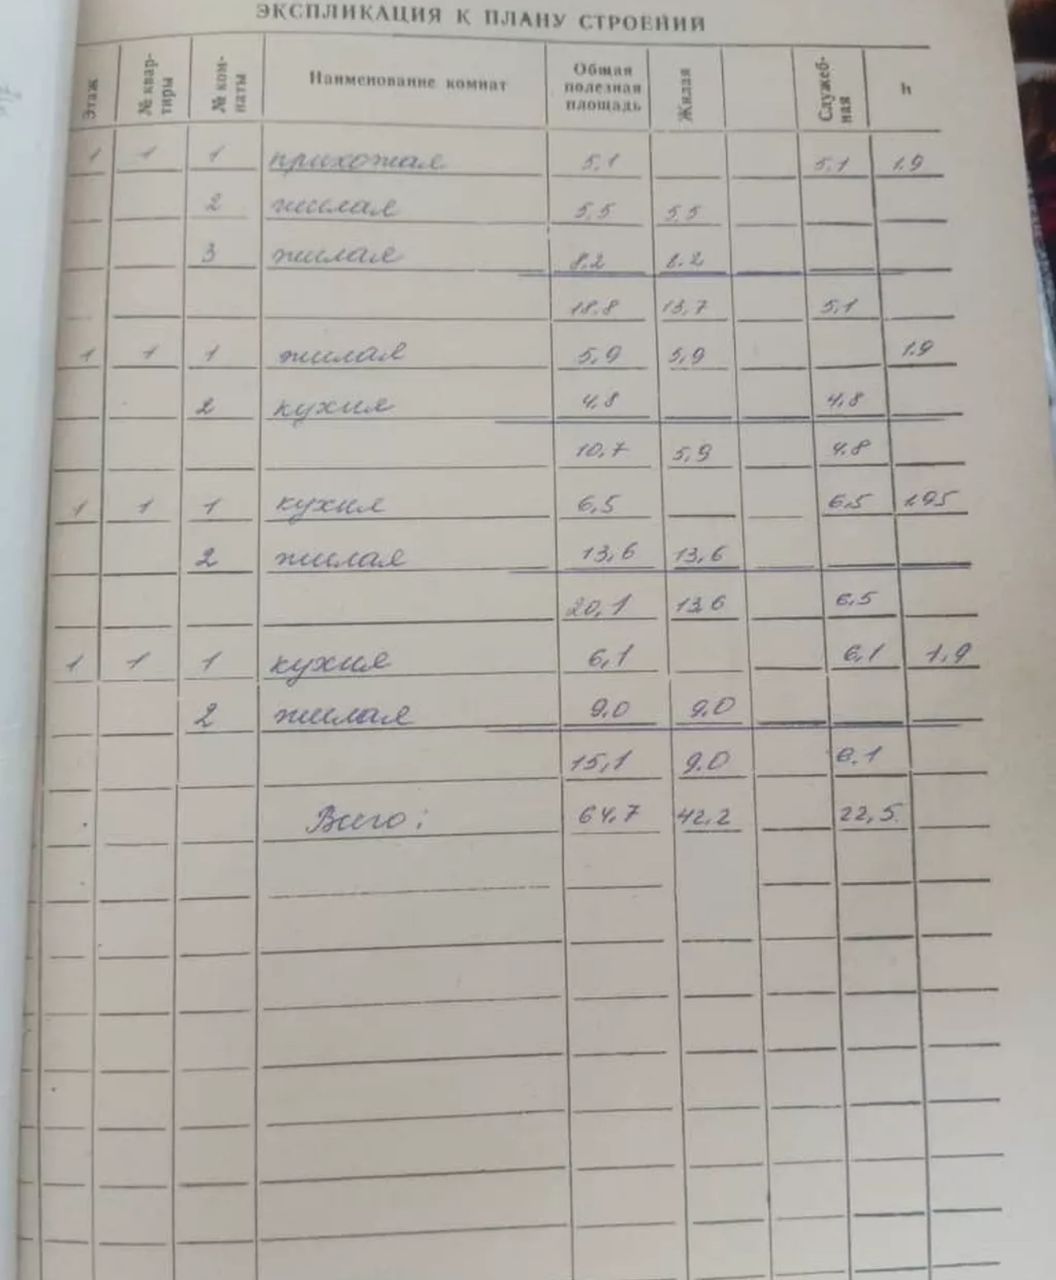 ЭКСПЛИКАЦИЯ К ПЛАНУ СТРОЕНИЙ
Этаж № квар-тиры № ком-наты Наименование комнат Общая полезная площадь Жилая Служеб-ная h
1 1 1 прихожая 5,1 5,1 1.9
2 жилая 5,5 5,5
3 жилая 8.2 8.2
18.8 13,7 5,1
1 1 1 жилая 5,9 5,9 1.9
2 кухня 4,8 4,8
10,7 5,9 4.8
1 1 1 кухня 6,5 6,5 1.95
2 жилая 13,6 13,6
20,1 13,6 6,5
1 1 1 кухня 6,1 6,1 1,9
2 жилая 9.0 9.0
15,1 9.0 6.1
Всего: 64,7 42,2 22,5